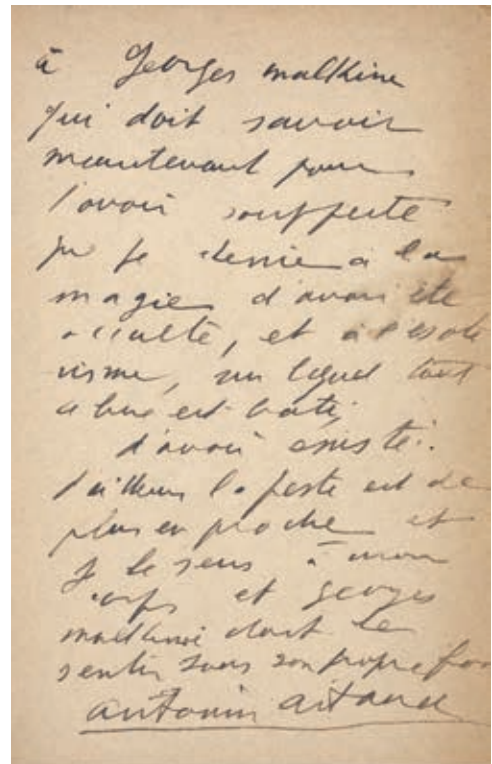 à Georges malkine
qui doit savoir
maintenant pour
l'avoir soufferte
que je dénie à la
magie d'avoir été
occulte, et à l'ésoté
risme, sur lequel tout
abus est bâti,
d'avoir existé.
D'ailleurs la peste est de
plus en plus proche et
je le sens à mon
corps et georges
malkine doit le
sentir dans son propre
antonin artaud